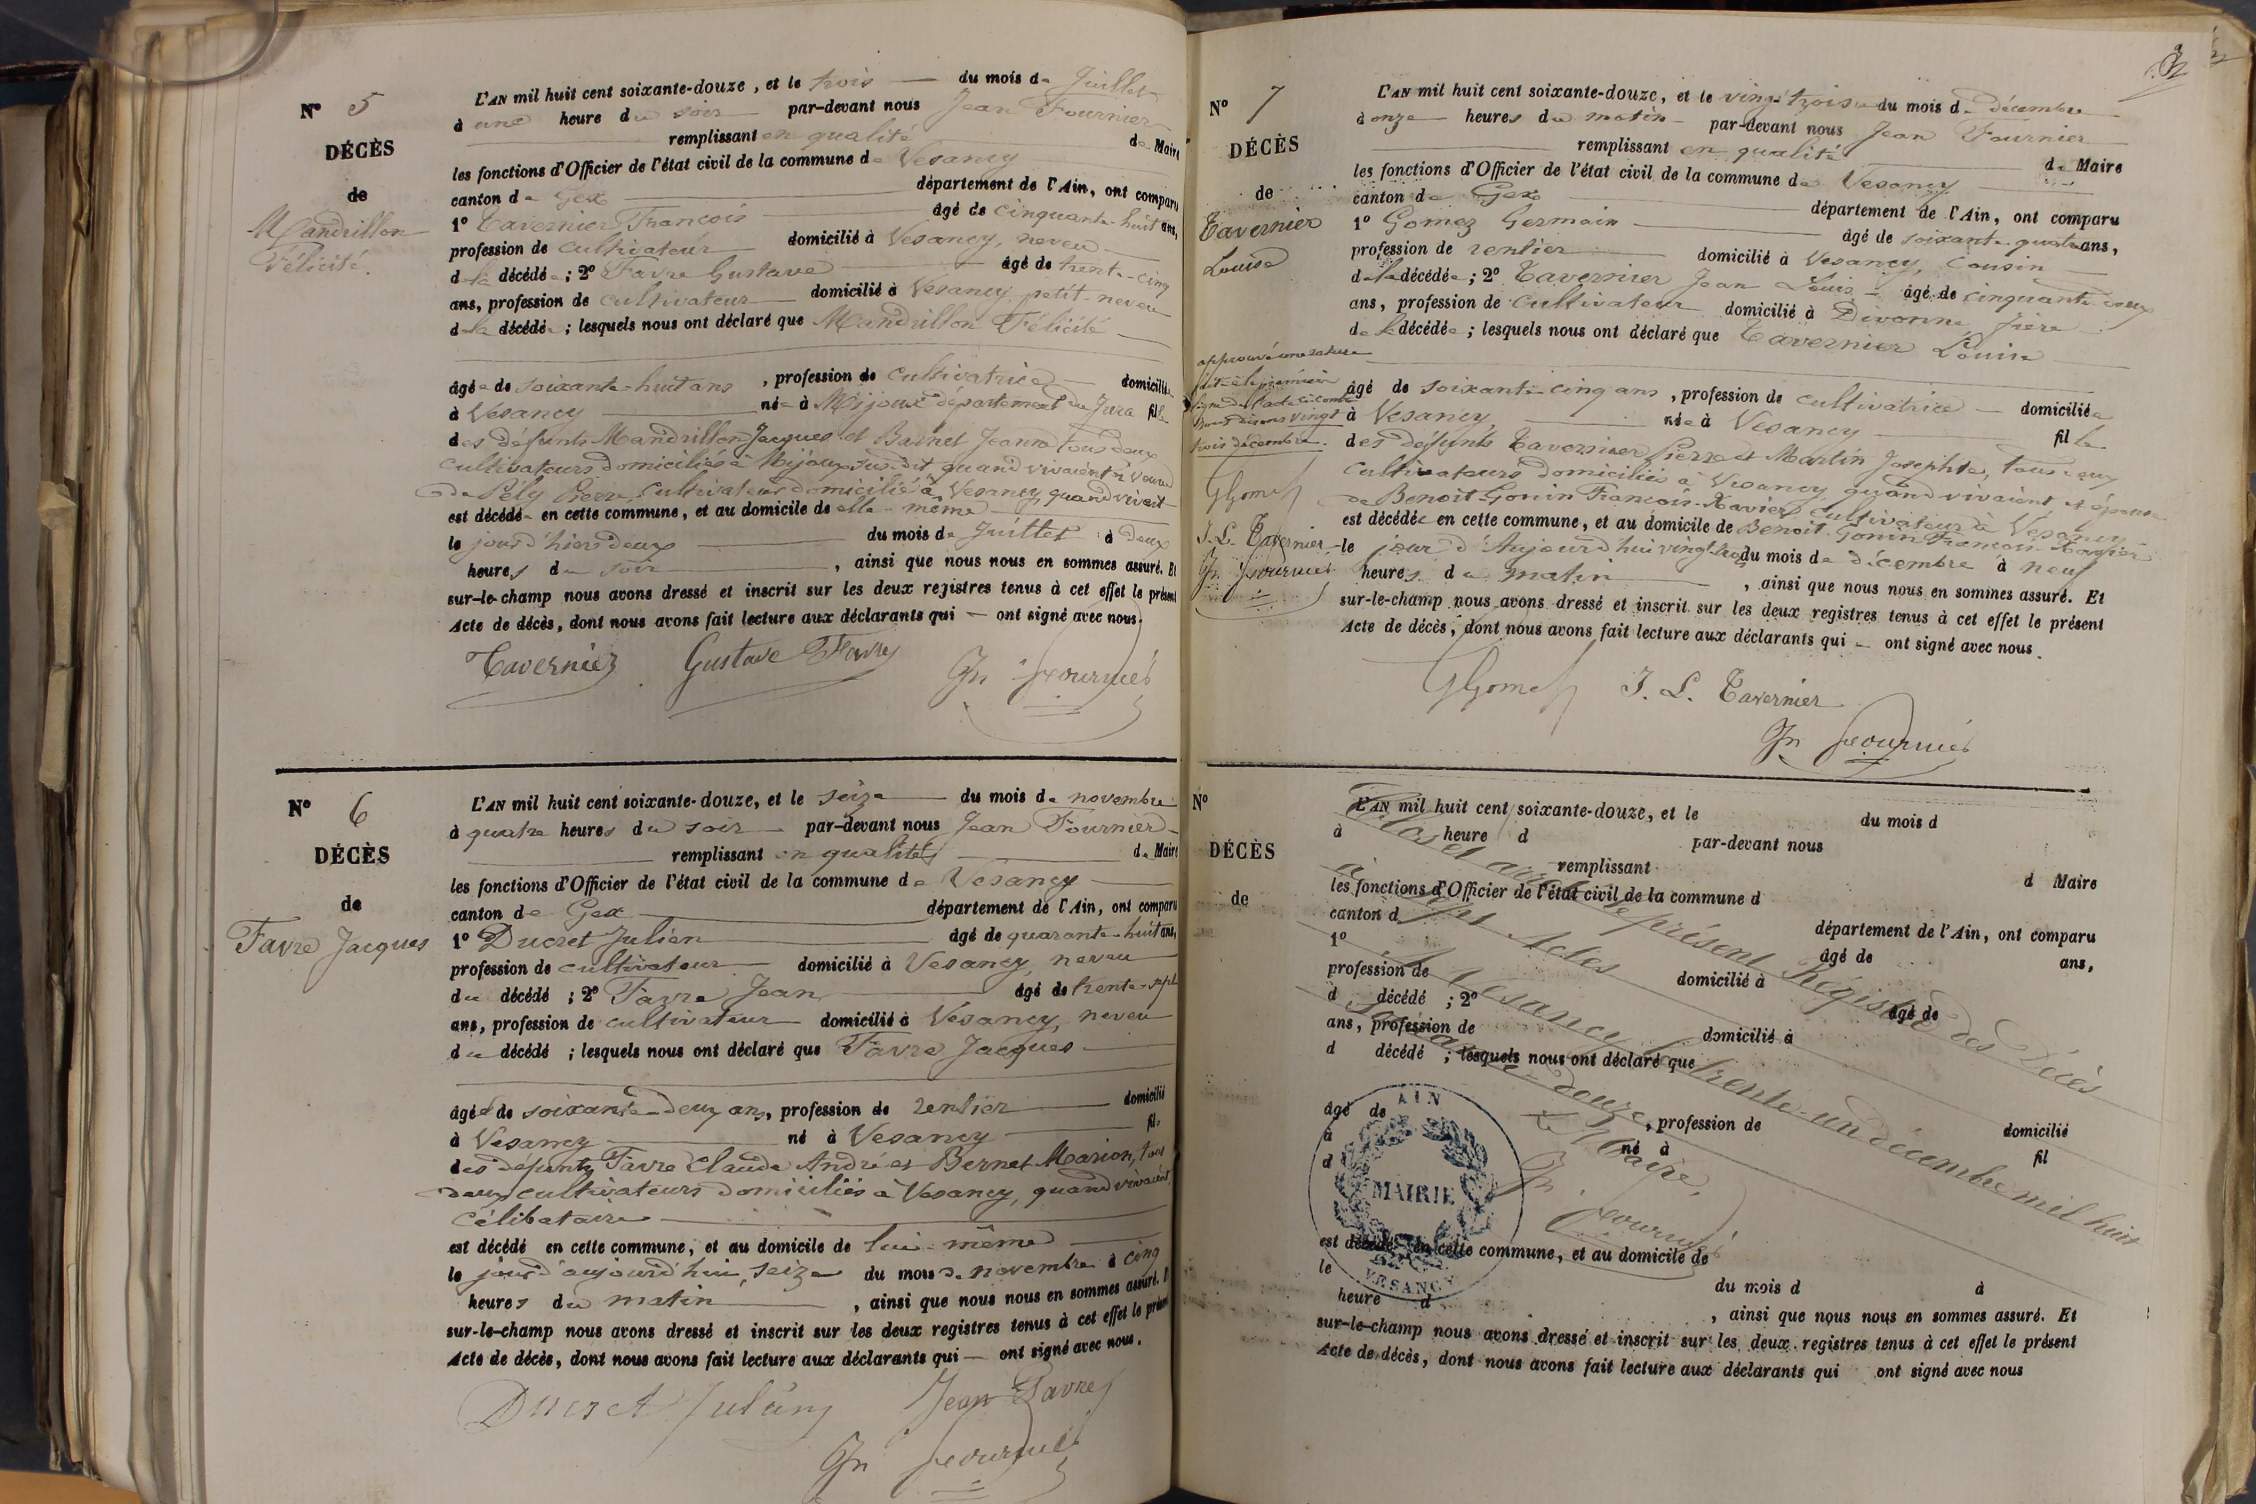 N° 5
DÉCÈS
de
Mandrillon
Félicité.
L'AN mil huit cent soixante-douze, et le trois du mois de Juillet
à une heure du soir par-devant nous Jean Fournier
remplissant en qualité de Maire
les fonctions d'Officier de l'état civil de la commune de Vesancy
canton de Gex département de l'Ain, ont comparu
1° Tavernier François âgé de cinquante-huit ans,
profession de cultivateur domicilié à Vesancy, neveu
de la décédée ; 2° Favre Gustave âgé de trente-cinq
ans, profession de cultivateur domicilié à Vesancy petit-neveu
de la décédée ; lesquels nous ont déclaré que Mandrillon Félicité
âgée de soixante-huit ans, profession de cultivatrice domiciliée
à Vesancy née à Mijoux département du Jura fille
des défunts Mandrillon Jacques et Barnet Jeanne tous deux
cultivateurs domiciliés à Mijoux susdit quand vivaient et veuve
de Pély Pierre, cultivateur domicilié à Vesancy quand vivait
est décédée en cette commune, et au domicile de elle-même
le jour d'hier deux du mois de Juillet à deux
heures du soir, ainsi que nous nous en sommes assuré. Et
sur-le-champ nous avons dressé et inscrit sur les deux registres tenus à cet effet le présent
Acte de décès, dont nous avons fait lecture aux déclarants qui — ont signé avec nous.
Tavernier Gustave Favre Jn Fournier
N° 6
DÉCÈS
de
Favre Jacques
L'AN mil huit cent soixante-douze, et le seize du mois de novembre
à quatre heures du soir par-devant nous Jean Fournier
remplissant en qualité de Maire
les fonctions d'Officier de l'état civil de la commune de Vesancy
canton de Gex département de l'Ain, ont comparu
1° Ducret Julien âgé de quarante-huit ans,
profession de cultivateur domicilié à Vesancy, neveu
du décédé ; 2° Favre Jean âgé de trente-sept
ans, profession de cultivateur domicilié à Vesancy, neveu
du décédé ; lesquels nous ont déclaré que Favre Jacques
âgé de soixante-deux ans, profession de rentier domicilié
à Vesancy né à Vesancy fils
des défunts Favre Claude André et Bernet Marion, tous
deux cultivateurs domiciliés à Vesancy, quand vivaient,
célibataire
est décédé en cette commune, et au domicile de lui-même
le jour d'aujourd'hui, seize du mois de novembre à cinq
heures du matin, ainsi que nous nous en sommes assuré. Et
sur-le-champ nous avons dressé et inscrit sur les deux registres tenus à cet effet le présent
Acte de décès, dont nous avons fait lecture aux déclarants qui — ont signé avec nous.
Ducret Julien Jean Favre
Jn Fournier
N° 7
DÉCÈS
de
Tavernier
Louise
L'AN mil huit cent soixante-douze, et le vingt trois du mois de décembre
à onze heures du matin par-devant nous Jean Fournier
remplissant en qualité de Maire
les fonctions d'Officier de l'état civil de la commune de Vesancy
canton de Gex département de l'Ain, ont comparu
1° Gomez Germain âgé de soixante-quatre ans,
profession de rentier domicilié à Vesancy, cousin
de la décédée ; 2° Tavernier Jean Louis âgé de cinquante-deux
ans, profession de cultivateur domicilié à Divonne frère
de la décédée ; lesquels nous ont déclaré que Tavernier Louise
âgé de soixante-cinq ans, profession de cultivatrice domiciliée
à Vesancy née à Vesancy fille
des défunts Tavernier Pierre et Martin Josephte, tous deux
cultivateurs domiciliés à Vesancy quand vivaient et épouse
de Benoit-Gonin François-Xavier cultivateur à Vesancy
est décédée en cette commune, et au domicile de Benoit Gonin François-Xavier
le jour d'Aujourd'hui vingt-trois du mois de décembre à neuf
heures du matin, ainsi que nous nous en sommes assuré. Et
sur-le-champ nous avons dressé et inscrit sur les deux registres tenus à cet effet le présent
Acte de décès, dont nous avons fait lecture aux déclarants qui — ont signé avec nous.
GGomez J. L. Tavernier
Jn Fournier
approuvé une rature
vingt
trois décembre.
GGomez
J. L. Tavernier
Jn Fournier
N°
DÉCÈS
de
L'AN mil huit cent soixante-douze, et le du mois d
à heure d par-devant nous
remplissant d Maire
les fonctions d'Officier de l'état civil de la commune d
canton d département de l'Ain, ont comparu
1° âgé de ans,
profession de domicilié à
d décédé ; 2° âgé de
ans, profession de domicilié à
d décédé ; lesquels nous ont déclaré que
âgé de , profession de domicilié
à né à fil
d
est décédé en cette commune, et au domicile de
le du mois d à
heure d , ainsi que nous nous en sommes assuré. Et
sur-le-champ nous avons dressé et inscrit sur les deux registres tenus à cet effet le présent
Acte de décès, dont nous avons fait lecture aux déclarants qui ont signé avec nous
Clos et arrêté le présent Régistre des Décès
à sept Actes
A Vesancy le trente-un décembre mil huit
soixante-douze
Le Maire,
Jn Fournier
AIN
MAIRIE
VESANCY